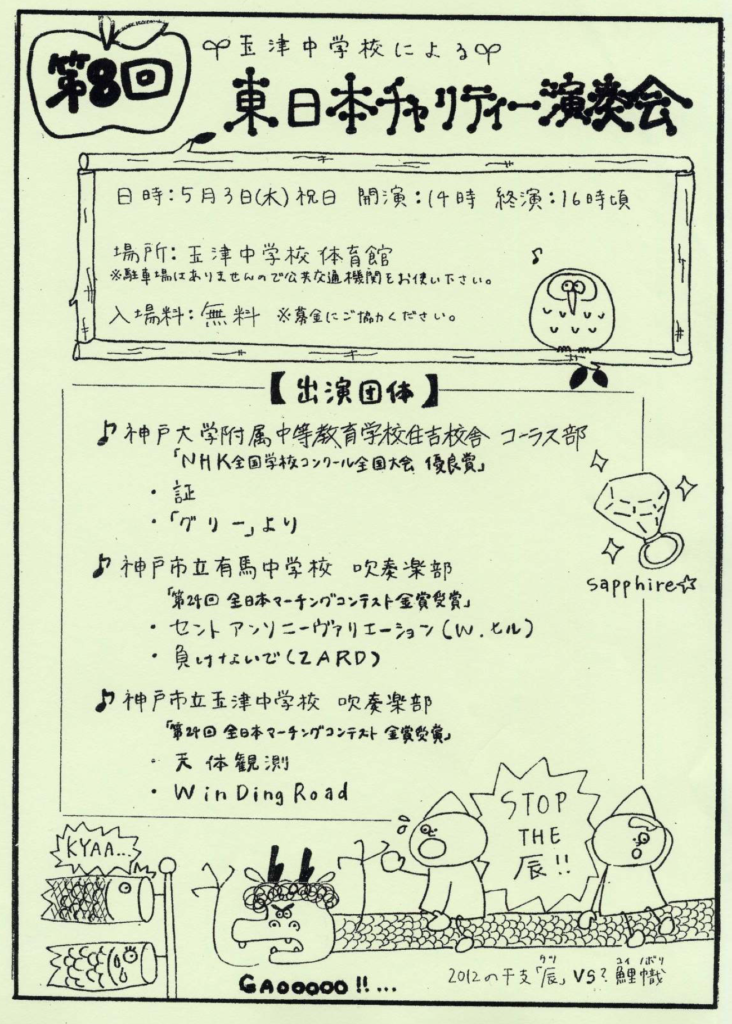 第8回
玉津中学校による
東日本チャリティー演奏会
日時:5月3日(木)祝日 開演:14時 終演:16時頃
場所:玉津中学校 体育館
※駐車場はありませんので公共交通機関をお使い下さい。
入場料:無料 ※募金にご協力ください。
【出演団体】
♪神戸大学附属中等教育学校住吉校舎 コーラス部
「NHK全国学校コンクール全国大会 優良賞」
・証
・「グリー」より
sapphire☆
♪神戸市立有馬中学校 吹奏楽部
「第24回 全日本マーチングコンテスト金賞受賞」
・セントアンソニーヴァリエーション(W.ヒル)
・負けないで(ZARD)
♪神戸市立玉津中学校 吹奏楽部
「第24回 全日本マーチングコンテスト 金賞受賞」
・天体観測
・WinDing Road
STOP
THE
辰!!
KYAA...
GAOOOOO!!...
2012の干支「辰」VS?鯉幟
タツ
コイ ノボリ